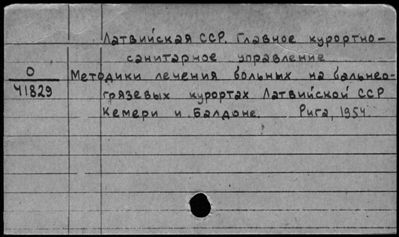 Латвийская ССР. Главное курортно-
санитарное управление
О
41829
Методики лечения больных на бальнео-
грязевых курортах Латвийской ССР
Кемери и Балдоне. Рига, 1954